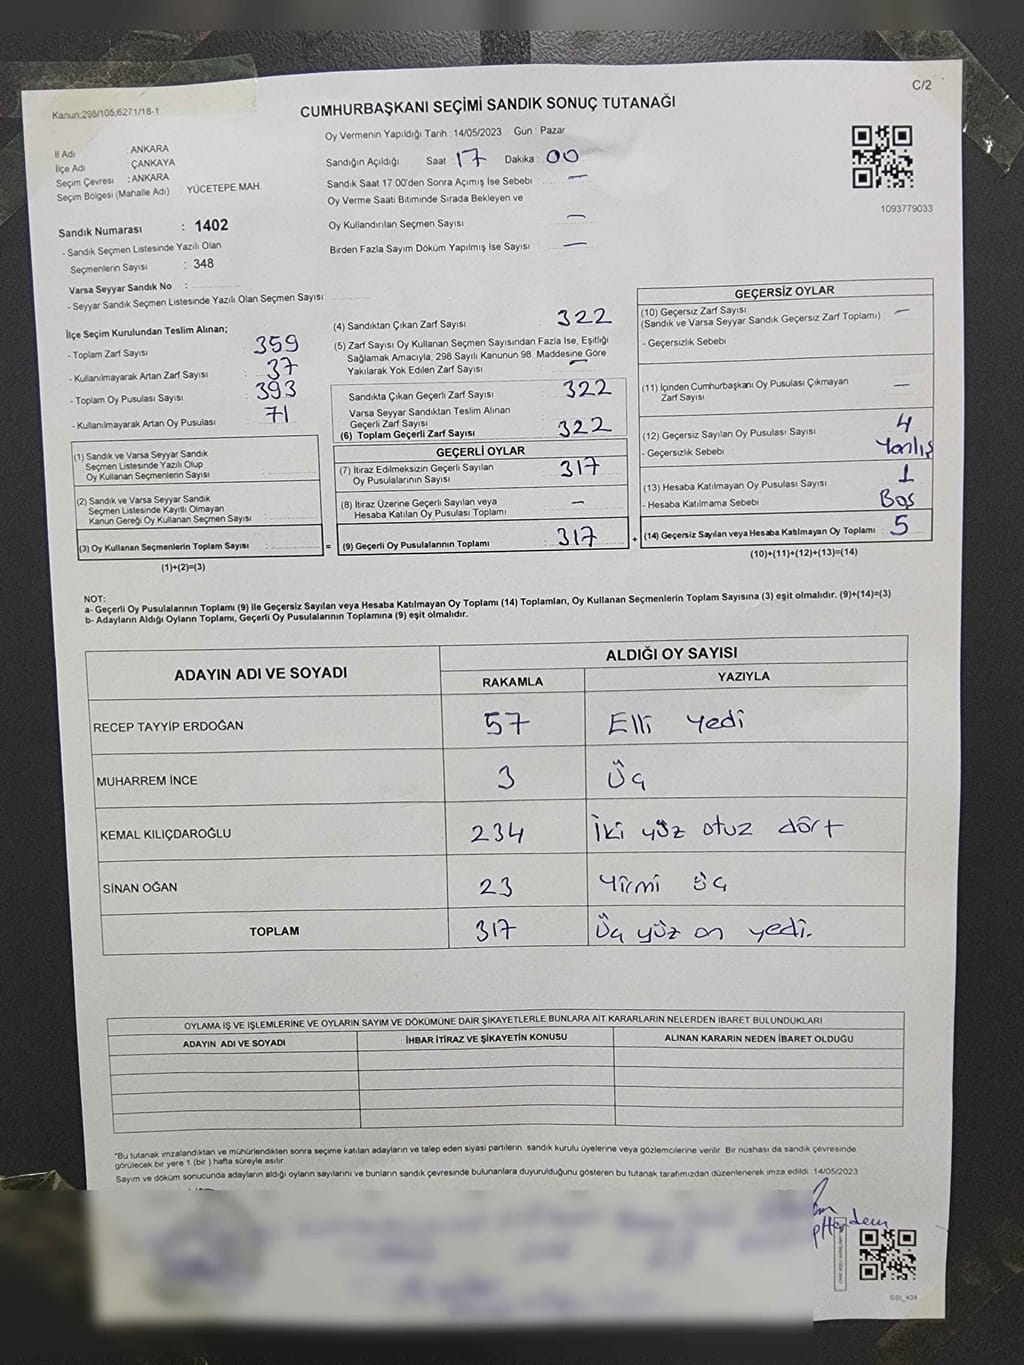 C/2
Kanun;298/105,6271/18-1
CUMHURBAŞKANI SEÇİMİ SANDIK SONUÇ TUTANAĞI
Oy Vermenin Yapıldığı Tarih : 14/05/2023 Gün : Pazar
İl Adı : ANKARA
İlçe Adı : ÇANKAYA
Seçim Çevresi : ANKARA
Seçim Bölgesi (Mahalle Adı) : YÜCETEPE MAH.
Sandığın Açıldığı Saat 17 Dakika : 00
Sandık Saat 17:00'den Sonra Açımış İse Sebebi : —
Oy Verme Saati Bitiminde Sırada Bekleyen ve
Oy Kullandırılan Seçmen Sayısı : —
Birden Fazla Sayım Döküm Yapılmış İse Sayısı : —
1093779033
Sandık Numarası : 1402
- Sandık Seçmen Listesinde Yazılı Olan
Seçmenlerin Sayısı : 348
Varsa Seyyar Sandık No :
- Seyyar Sandık Seçmen Listesinde Yazılı Olan Seçmen Sayısı
İlçe Seçim Kurulundan Teslim Alınan;
- Toplam Zarf Sayısı : 359
- Kullanılmayarak Artan Zarf Sayısı : 37
- Toplam Oy Pusulası Sayısı : 393
- Kullanılmayarak Artan Oy Pusulası : 71
(1) Sandık ve Varsa Seyyar Sandık
Seçmen Listesinde Yazılı Olup
Oy Kullanan Seçmenlerin Sayısı :
(2) Sandık ve Varsa Seyyar Sandık
Seçmen Listesinde Kayıtlı Olmayan
Kanun Gereği Oy Kullanan Seçmen Sayısı :
(3) Oy Kullanan Seçmenlerin Toplam Sayısı :
(1)+(2)=(3)
(4) Sandıktan Çıkan Zarf Sayısı : 322
(5) Zarf Sayısı Oy Kullanan Seçmen Sayısından Fazla İse, Eşitliği
Sağlamak Amacıyla, 298 Sayılı Kanunun 98. Maddesine Göre
Yakılarak Yok Edilen Zarf Sayısı : —
Sandıkta Çıkan Geçerli Zarf Sayısı : 322
Varsa Seyyar Sandıktan Teslim Alınan
Geçerli Zarf Sayısı :
(6) Toplam Geçerli Zarf Sayısı : 322
GEÇERLİ OYLAR
(7) İtiraz Edilmeksizin Geçerli Sayılan
Oy Pusulasının Sayısı : 317
(8) İtiraz Üzerine Geçerli Sayılan veya
Hesaba Katılan Oy Pusulası Toplamı : —
= (9) Geçerli Oy Pusulalarının Toplamı : 317 +
GEÇERSİZ OYLAR
(10) Geçersiz Zarf Sayısı : —
(Sandık ve Varsa Seyyar Sandık Geçersiz Zarf Toplamı)
- Geçersizlik Sebebi
(11) İçinden Cumhurbaşkanı Oy Pusulası Çıkmayan
Zarf Sayısı : —
(12) Geçersiz Sayılan Oy Pusulası Sayısı : 4
- Geçersizlik Sebebi : Yanlış
(13) Hesaba Katılmayan Oy Pusulası Sayısı : 1
- Hesaba Katılmama Sebebi : Boş
(14) Geçersiz Sayılan veya Hesaba Katılmayan Oy Toplamı : 5
(10)+(11)+(12)+(13)=(14)
NOT:
a- Geçerli Oy Pusulalarının Toplamı (9) ile Geçersiz Sayılan veya Hesaba Katılmayan Oy Toplamı (14) Toplamları, Oy Kullanan Seçmenlerin Toplam Sayısına (3) eşit olmalıdır. (9)+(14)=(3)
b- Adayların Aldığı Oyların Toplamı, Geçerli Oy Pusulalarının Toplamına (9) eşit olmalıdır.
ADAYIN ADI VE SOYADI ALDIĞI OY SAYISI
RAKAMLA YAZIYLA
RECEP TAYYİP ERDOĞAN 57 Elli yedi
MUHARREM İNCE 3 Üç
KEMAL KILIÇDAROĞLU 234 İki yüz otuz dört
SİNAN OĞAN 23 Yirmi üç
TOPLAM 317 Üç yüz on yedi.
OYLAMA İŞ VE İŞLEMLERİNE VE OYLARIN SAYIM VE DÖKÜMÜNE DAİR ŞİKAYETLERLE BUNLARA AİT KARARLARIN NELERDEN İBARET BULUNDUKLARI
ADAYIN ADI VE SOYADI İHBAR İTİRAZ VE ŞİKAYETİN KONUSU ALINAN KARARIN NEDEN İBARET OLDUĞU
*Bu tutanak imzalandıktan ve mühürlendikten sonra seçime katılan adayların ve talep eden siyasi partilerin sandık kurulu üyelerine veya gözlemcilerine verilir. Bir nüshası da sandık çevresinde
görülecek bir yere 1 (bir) hafta süreyle asılır.
Sayım ve döküm sonucunda adayların aldığı oyların sayılarını ve bunların sandık çevresinde bulunanlara duyurulduğunu gösteren bu tutanak tarafımızdan düzenlenerek imza edildi. 14/05/2023